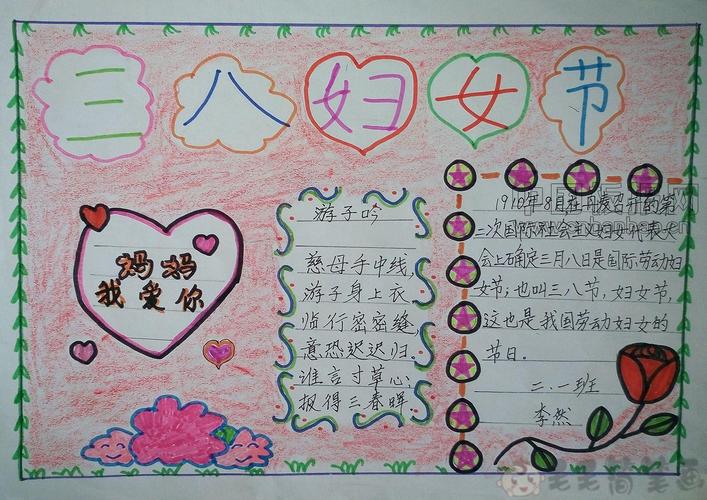 三八妇女节
妈妈
我爱你
游子吟
慈母手中线,
游子身上衣
临行密密缝,
意恐迟迟归.
谁言寸草心
报得三春晖
1910年8月在丹麦召开的第
二次国际社会主义妇女代表大
会上确定三月八日是国际劳动妇
女节;也叫三八节,妇女节,
这也是我国劳动妇女的
节日.
二.一班
李然
笔笔简笔画